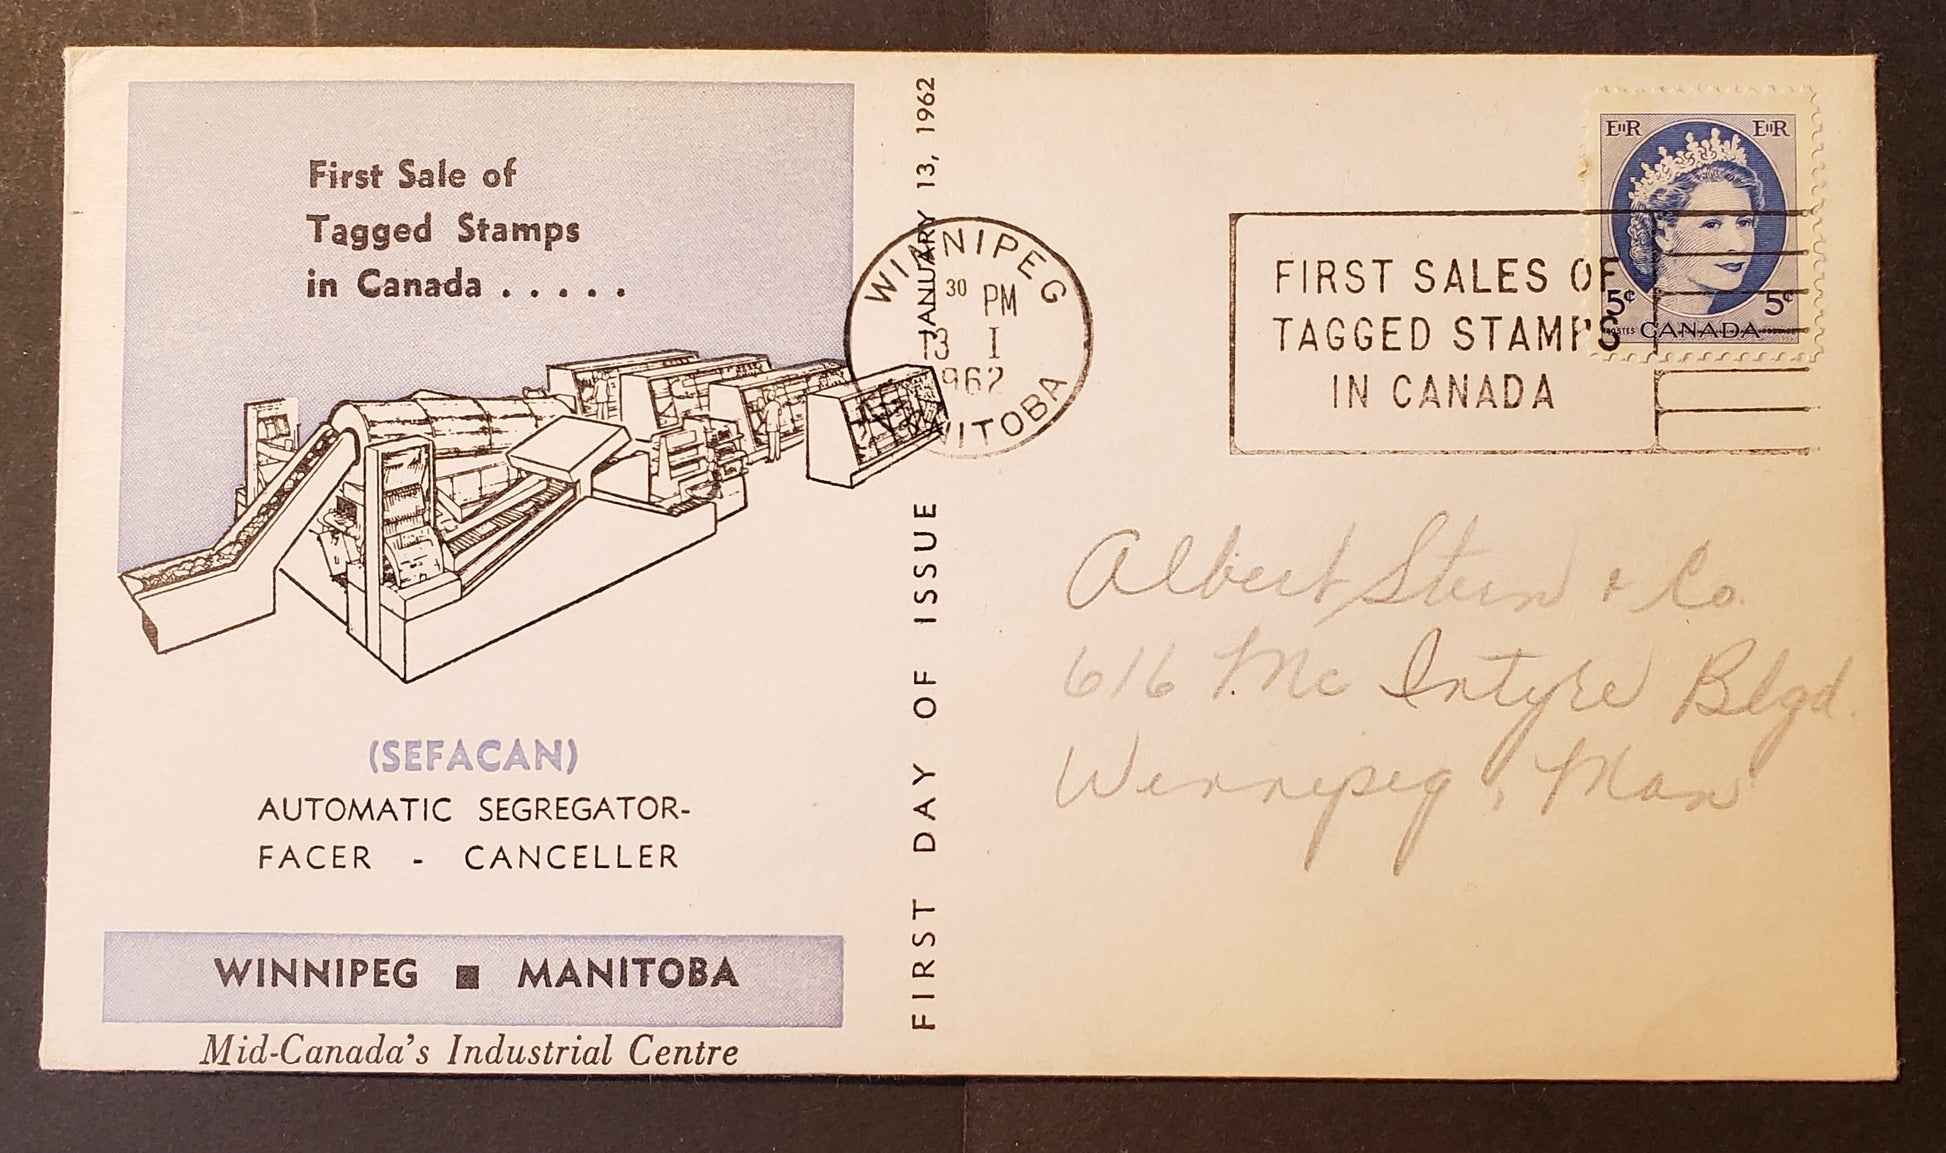 First Sale of
Tagged Stamps
in Canada . . . . .
(SEFACAN)
AUTOMATIC SEGREGATOR-
FACER - CANCELLER
WINNIPEG ■ MANITOBA
Mid-Canada's Industrial Centre
FIRST DAY OF ISSUE JANUARY 13, 1962
WINNIPEG
30 PM
13 I
1962
MANITOBA
FIRST SALES OF
TAGGED STAMPS
IN CANADA
EIIR EIIR
5¢ 5¢
POSTES CANADA POSTAGE
Albert Stern & Co.
616 Mc Intyre Blgd.
Winnipeg, Man